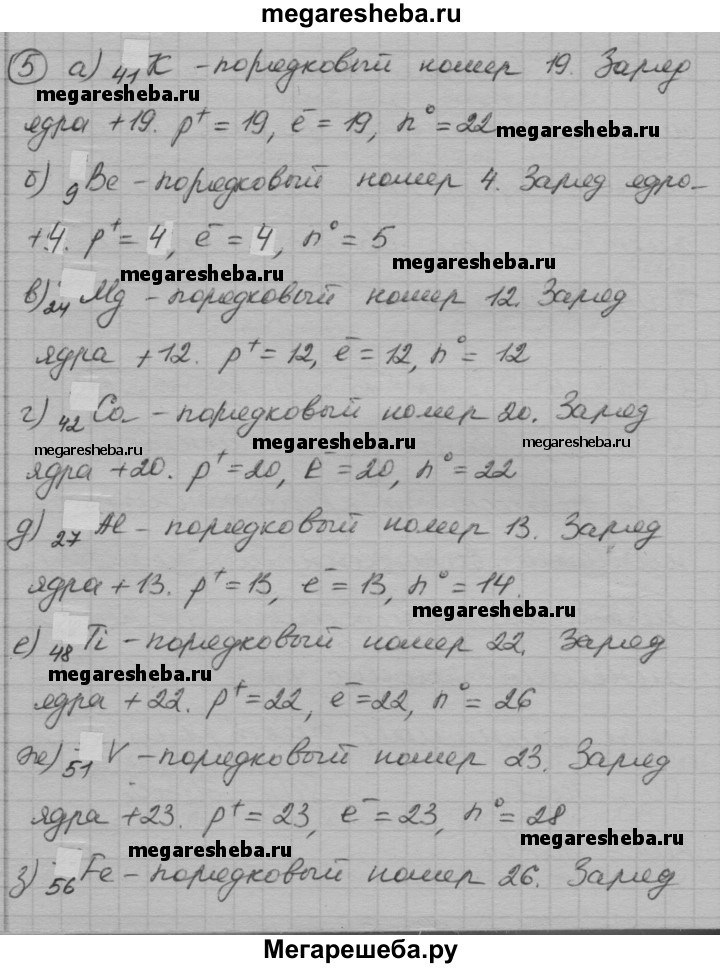 megaresheba.ru
5 а) 41K - порядковый номер 19. Заряд
megaresheba.ru
ядра +19. p⁺ = 19, e⁻ = 19, n⁰ = 22
megaresheba.ru
б) 9Be - порядковый номер 4. Заряд ядра
+4. p⁺ = 4, e⁻ = 4, n⁰ = 5
megaresheba.ru
megaresheba.ru
в) 24Mg - порядковый номер 12. Заряд
ядра +12. p⁺ = 12, e⁻ = 12, n⁰ = 12
г) 42Ca - порядковый номер 20. Заряд
megaresheba.ru megaresheba.ru megaresheba.ru
ядра +20. p⁺ = 20, e⁻ = 20, n⁰ = 22
д) 27Al - порядковый номер 13. Заряд
ядра +13. p⁺ = 13, e⁻ = 13, n⁰ = 14.
megaresheba.ru
е) 48Ti - порядковый номер 22. Заряд
megaresheba.ru
ядра +22. p⁺ = 22, e⁻ = 22, n⁰ = 26
ж) 51V - порядковый номер 23. Заряд
ядра +23. p⁺ = 23, e⁻ = 23, n⁰ = 28
megaresheba.ru
megaresheba.ru
з) 56Fe - порядковый номер 26. Заряд
Мегарешеба.ру